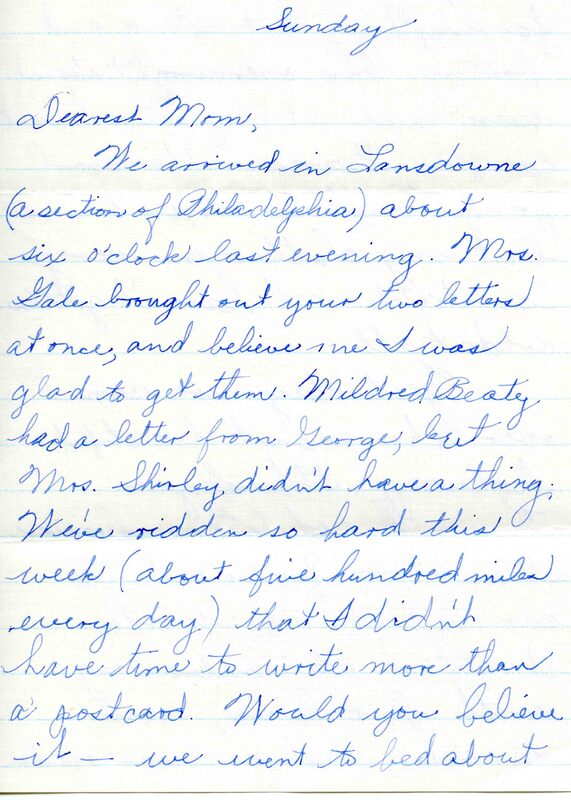 Sunday
Dearest Mom,
We arrived in Lansdowne
(a section of Philadelphia) about
six o'clock last evening. Mrs.
Gale brought out your two letters
at once, and believe me I was
glad to get them. Mildred Beaty
had a letter from George, but
Mrs. Shirley didn't have a thing.
We've ridden so hard this
week (about five hundred miles
every day) that I didn't
have time to write more than
a postcard. Would you believe
it — we went to bed about